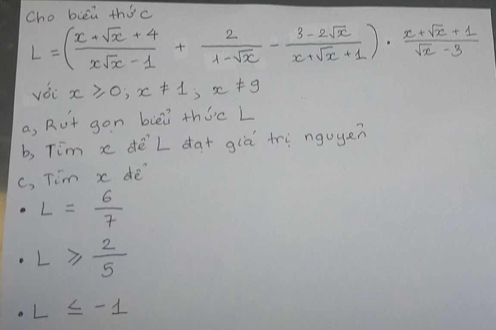 Cho biểu thức
L = ( (x + √x + 4)/(x√x - 1) + 2/(1 - √x) - (3 - 2√x)/(x + √x + 1) ) · (x + √x + 1)/(√x - 3)
với x ≥ 0, x ≠ 1, x ≠ 9
a, Rút gọn biểu thức L
b, Tìm x để L đạt giá trị nguyên
c, Tìm x để
• L = 6/7
• L ≥ 2/5
• L ≤ -1